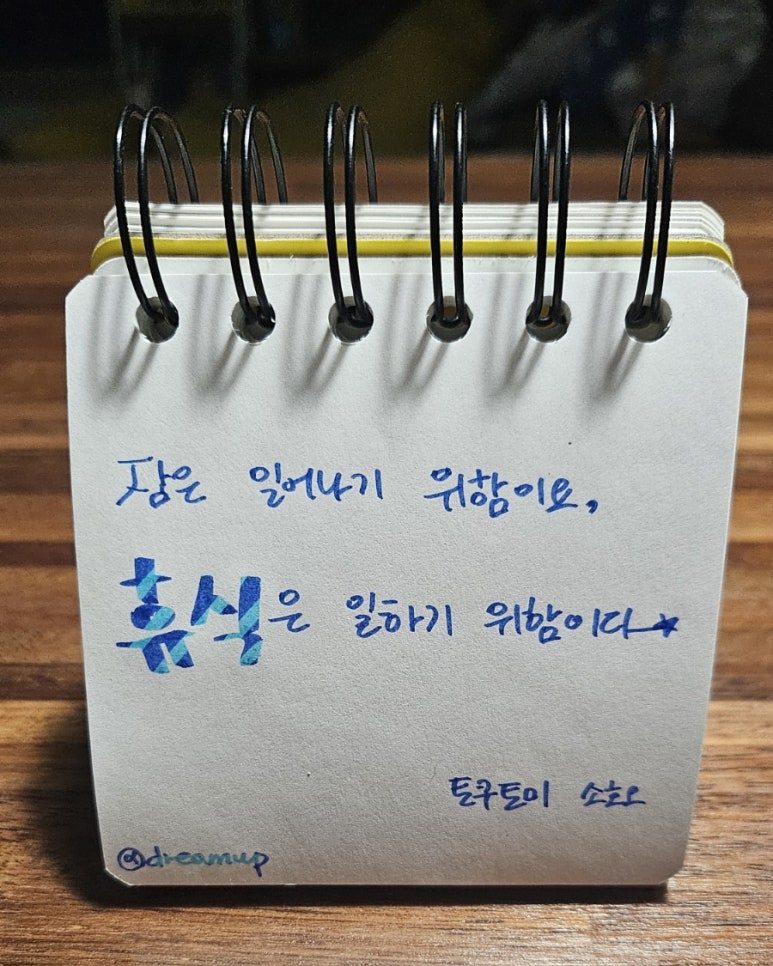 잠은 일어나기 위함이요,
휴식은 일하기 위함이다★
토쿠토미 소호오
@dreamup